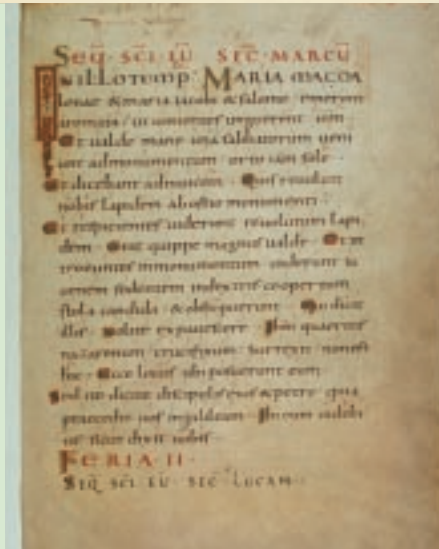 SEQ SCI EU SEC MARCU
IN ILLO TEMP MARIA MAGDA
lenae & maria iacobi & salome emerunt
aromata ut uenientes ungerent
Et ualde mane una sabbatorum ueni
unt ad monumentum orto iam sole
Et dicebant ad inuicem Quis reuoluet
nobis lapidem ab ostio monumenti
Et respicientes uiderunt reuolutum lapi
dem Erat quippe magnus ualde Et in
troeuntes in monumentum uiderunt iu
uenem sedentem in dextris coopertum
stola candida & obstipuerunt Qui dicit
illis Nolite expauescere Ihm queritis
nazarenum crucifixum surrexit non est
hic Ecce locus ubi posuerunt eum
Sed ite dicite discipulis eius & petro quia
praecedit uos in galileam Ibi eum uidebi
tis sicut dixit uobis
FERIA II
SEQ SCI EU SEC LUCAM